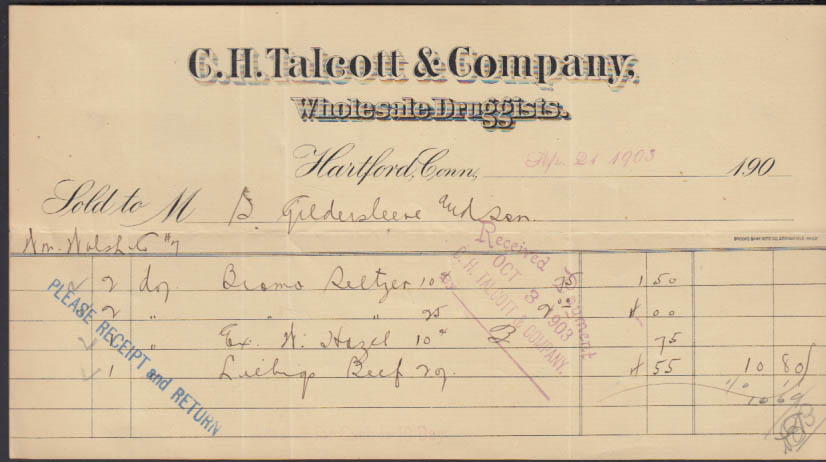 C.H. Talcott & Company,
Wholesale Druggists.
Hartford, Conn., Apr. 21 1903 190
Sold to M B. Gildersleeve and son.
Wm. Walsh #7
2 doz Bromo Seltzer 10c 75 1 50
2 " " " 25 2 00 4 00
" Ex. W. Hazel 10c 75
1 " Liebigs Beef 2oz. 4 55 10 80
10 69
PLEASE RECEIPT and RETURN
Received Payment
OCT 3 1903
C. H. TALCOTT & COMPANY.